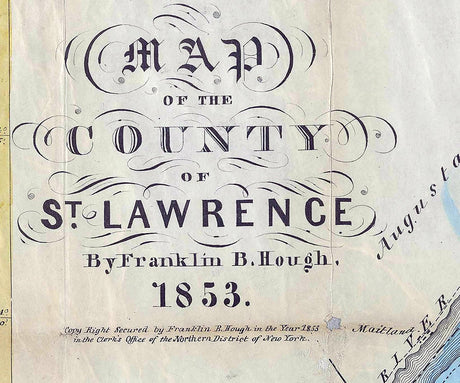 MAP
OF THE
COUNTY
OF
ST. LAWRENCE
By Franklin B. Hough,
1853.
Copy Right Secured by Franklin B. Hough in the Year 1853
in the Clerk's Office of the Northern District of New York.
Augusta
Maitland
RIVER